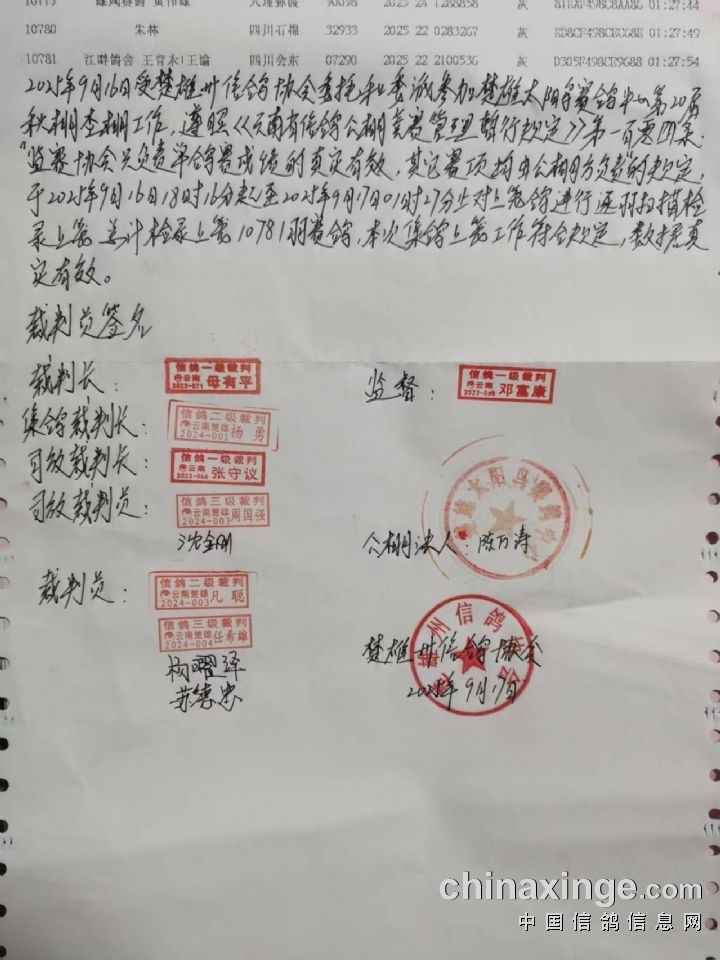 10780 朱林 四川石棉 32933 2025 22 0283267 灰 ED8CF498CEC68E 01:27:49
10781 江畔鸽舍 王育永+王谕 四川会东 07290 2025 22 2100536 灰 D305F498CE9688 01:27:54
2025年9月16日受楚雄州信鸽协会委托和委派参加楚雄太阳鸟赛鸽中心第20届
秋棚查棚工作，遵照《云南省信鸽公棚竞赛管理暂行规定》第一百零四条：
"监赛协会只负责单鸽赛成绩的真实有效，其它赛项均由公棚方负责的规定，
于2025年9月16日18时16分起至2025年9月17日01时27分止对上笼鸽进行逐羽扫描检
录上笼，共计检录上笼10781羽赛鸽，本次集鸽上笼工作符合规定，数据真
实有效。
裁判员签名
裁判长： 信鸽一级裁判 云南 2023-071 母有平
监督： 信鸽一级裁判 云南 邓富康
集鸽裁判长： 信鸽二级裁判 云南楚雄 2024-001 杨勇
司放裁判长： 信鸽一级裁判 云南 张守议
司放裁判员： 信鸽三级裁判 云南楚雄 2024-003 周国强
沈金刚
公棚法人：陈万涛
楚雄太阳鸟赛鸽中心
裁判员： 信鸽二级裁判 云南楚雄 2024-003 凡聪
信鸽三级裁判 云南楚雄 2024-004 任希雄
杨曜泽
苏德忠
楚雄州信鸽协会
2025年9月17日
楚雄州信鸽协会
chinaxinge.com
中国信鸽信息网